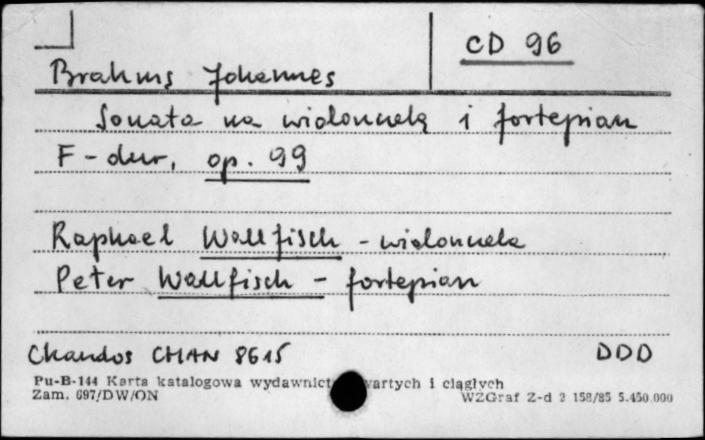 CD 96
Brahms Johannes
Sonata na wiolonczelę i fortepian
F-dur, op. 99
Raphael Wallfisch - wiolonczela
Peter Wallfisch - fortepian
Chandos CHAN 8615 DDD
Pu-B-144 Karta katalogowa wydawnict wartych i ciągłych
Zam. 697/DW/ON WZGraf Z-d 2 158/85 5.450.000